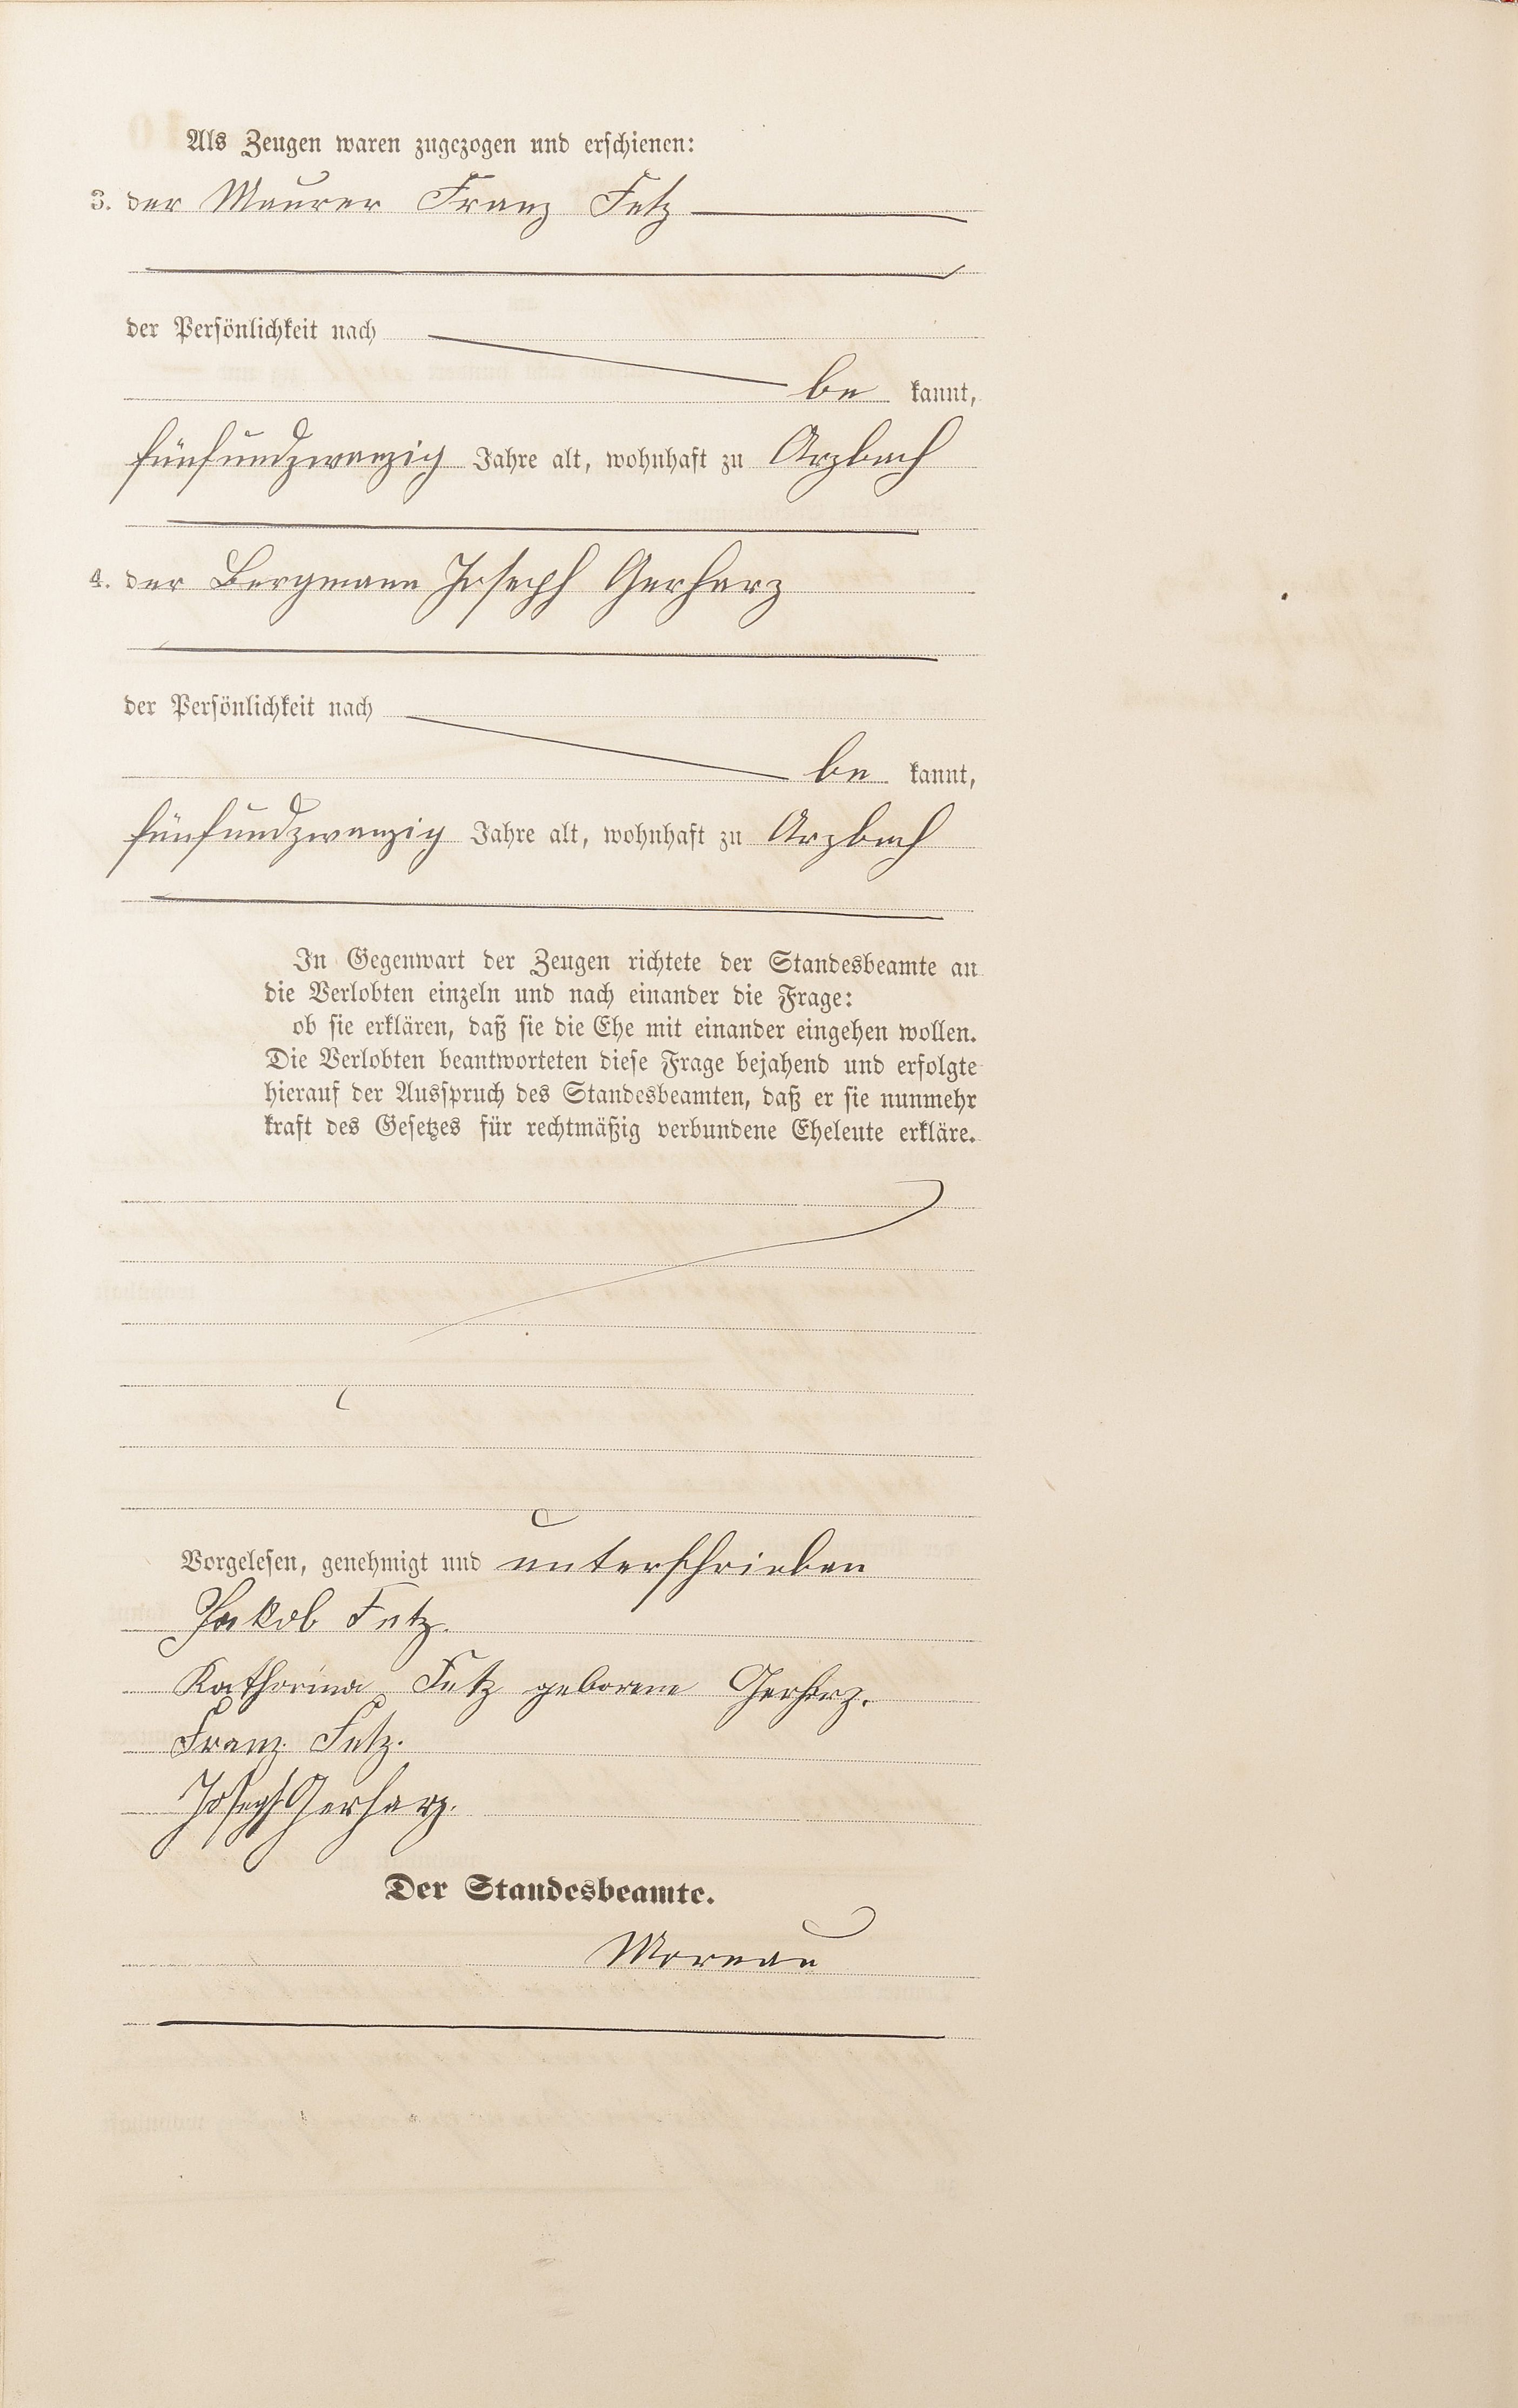 Als Zeugen waren zugezogen und erschienen:
3. der Maurer Franz Fetz
der Persönlichkeit nach
be kannt,
fünfundzwanzig Jahre alt, wohnhaft zu Arzbach
4. der Bergmann Joseph Gerharz
der Persönlichkeit nach
be kannt,
fünfundzwanzig Jahre alt, wohnhaft zu Arzbach
In Gegenwart der Zeugen richtete der Standesbeamte an
die Verlobten einzeln und nach einander die Frage:
ob sie erklären, daß sie die Ehe mit einander eingehen wollen.
Die Verlobten beantworteten diese Frage bejahend und erfolgte
hierauf der Ausspruch des Standesbeamten, daß er sie nunmehr
kraft des Gesetzes für rechtmäßig verbundene Eheleute erkläre.
Vorgelesen, genehmigt und unterschrieben
Jakob Fetz.
Katharina Fetz geborene Gerharz.
Franz Fetz.
Joseph Gerharz.
Der Standesbeamte.
Moreau